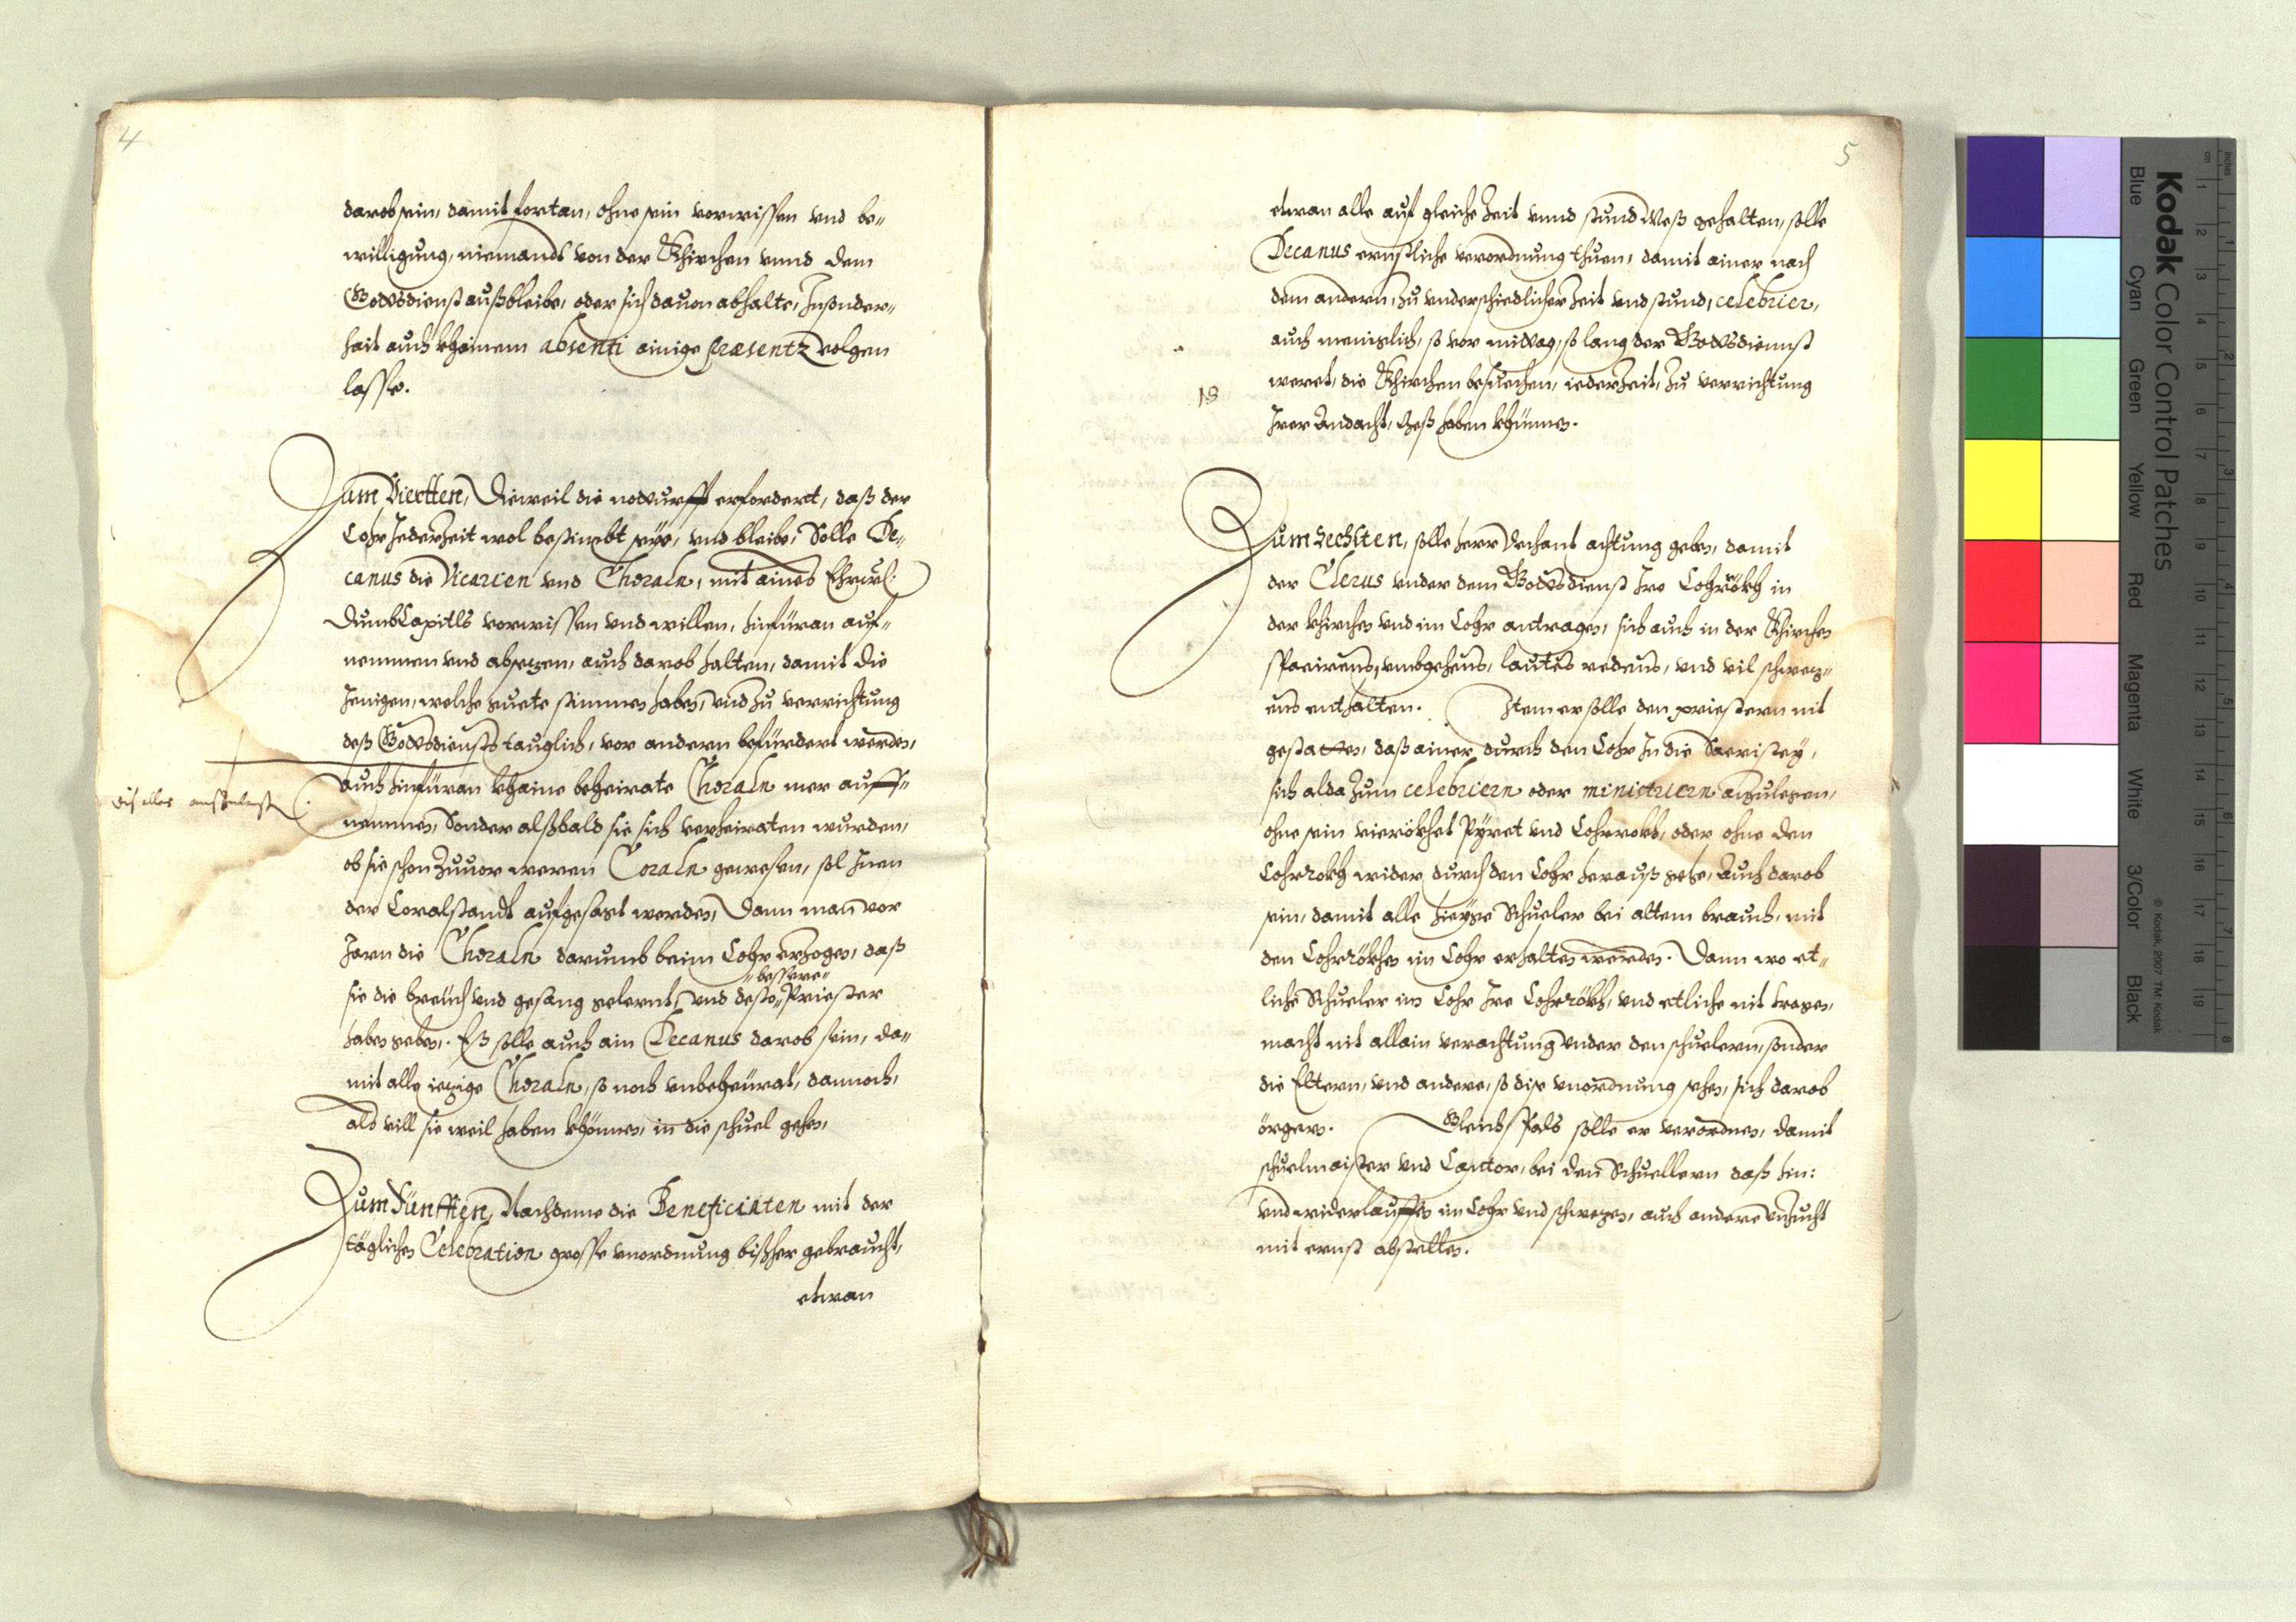 4
darob sein, damit fortan, ohne sein vorwissen vnd be„
willigung, niemandt von der Khirchen vnnd dem
Gottsdienst außbleibe, oder sich dauon abhalte, Insonder„
hait auch khainem absenti ainige præsentz volgen
lasse.
Zum Viertten, Dieweil die notturfft erfordert, daß der
Cohr Jederzeit wol bestimbt seye, vnd bleibe, Solle De„
canus die Vicarien vnd Choraln, mit aines Ehrw:
Dumb Capitls vorwissen vnd willen, hinfüran auf„
nemmen vnd absezen, auch darob halten, damit die
Jenigen, welche guete stimmen haben, vnd zu verrichtung
deß Gottsdiensts tauglich, vor andern befürdert werden,
auch hinfüran khaine beheirate Choraln mer auff„
nemmen, Sonder alßbald sie sich verheiraten wurden,
ob sie schon zuuor weren Coraln gewesen, sol Jnen
der Coralstandt aufgesagt werden, Dann man vor
Jarn die Choraln darumb beim Cohr erzogen, daß
„bessere„
sie die breüch vnd gesang gelernt, vnd desto„ Priester
haben geben. Eß solle auch ain Decanus darob sein, da„
mit alle iezige Choraln, so noch vnbeheürat, dannoch,
als vill sie weil haben khönnen, in die schuel gehen,
Zum Fünfften, Nachdeme die Beneficiaten mit der
täglichen Celebration grosse vnordnung bißher gebraucht,
etwan
5
etwan alle auf gleiche Zeit vnnd stund Meß gehalten, solle
Decanus ernstliche verordnung thuen, damit ainer nach
dem andern, zu vnderschiedlicher Zeit vnd stund, celebrier,
auch menigclich, so vor mittag, so lang der Gottsdiennst
weret, die Khirchen besuechen, iederzeit, zu verrichtung
Jrer Andacht, Meß haben khünnen.
Zum Sechsten, solle herr Dechant achtung geben, damit
der Clerus vnder dem Gottsdienst Jre Cohrrökh in
der khirchen vnd im Cohr antragen, sich auch in der Khirchen
spacirens, vmbgehens, lautes redens, vnd vil schwez„
ens enthalten. Item er solle den priestern nit
gestatten, daß ainer durch den Cohr Jn die Sacristey,
sich alda zum celebriern oder ministriern anzulegen,
ohne sein vierökhet Pyret vnd Cohrrokh, oder ohne den
Cohrrokh wider durch den Cohr herauß gehe, Auch darob
sein, damit alle hieige Schueler bei altem brauch, mit
den Cohrrökhen im Cohr erhalten werden. Dann wo et„
liche Schueler im Cohr Jre Cohrrökh, vnd etliche nit tragen,
macht nit allain verachtung vnder den schuelern, sonder
die Eltern, vnd andere, so dise vnordnung sehen, sich darob
örgern. Gleichsfals solle er verordnen, damit
schuelmaister vnd Cantor, bei den Schuellern daß hin:
vnd widerlauffen im Cohr vnd schwezen, auch andere vnzucht
mit ernst abstellen.